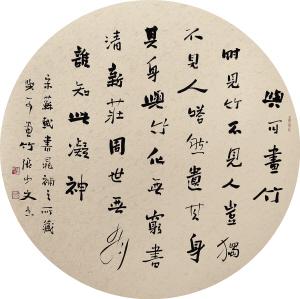 與可畫竹
時見竹不見人豈獨
不見人嗒然遺其身
其身與竹化無窮書
清新莊周世無
誰知此凝神
宋蘇軾書晁補之所藏
與可畫竹